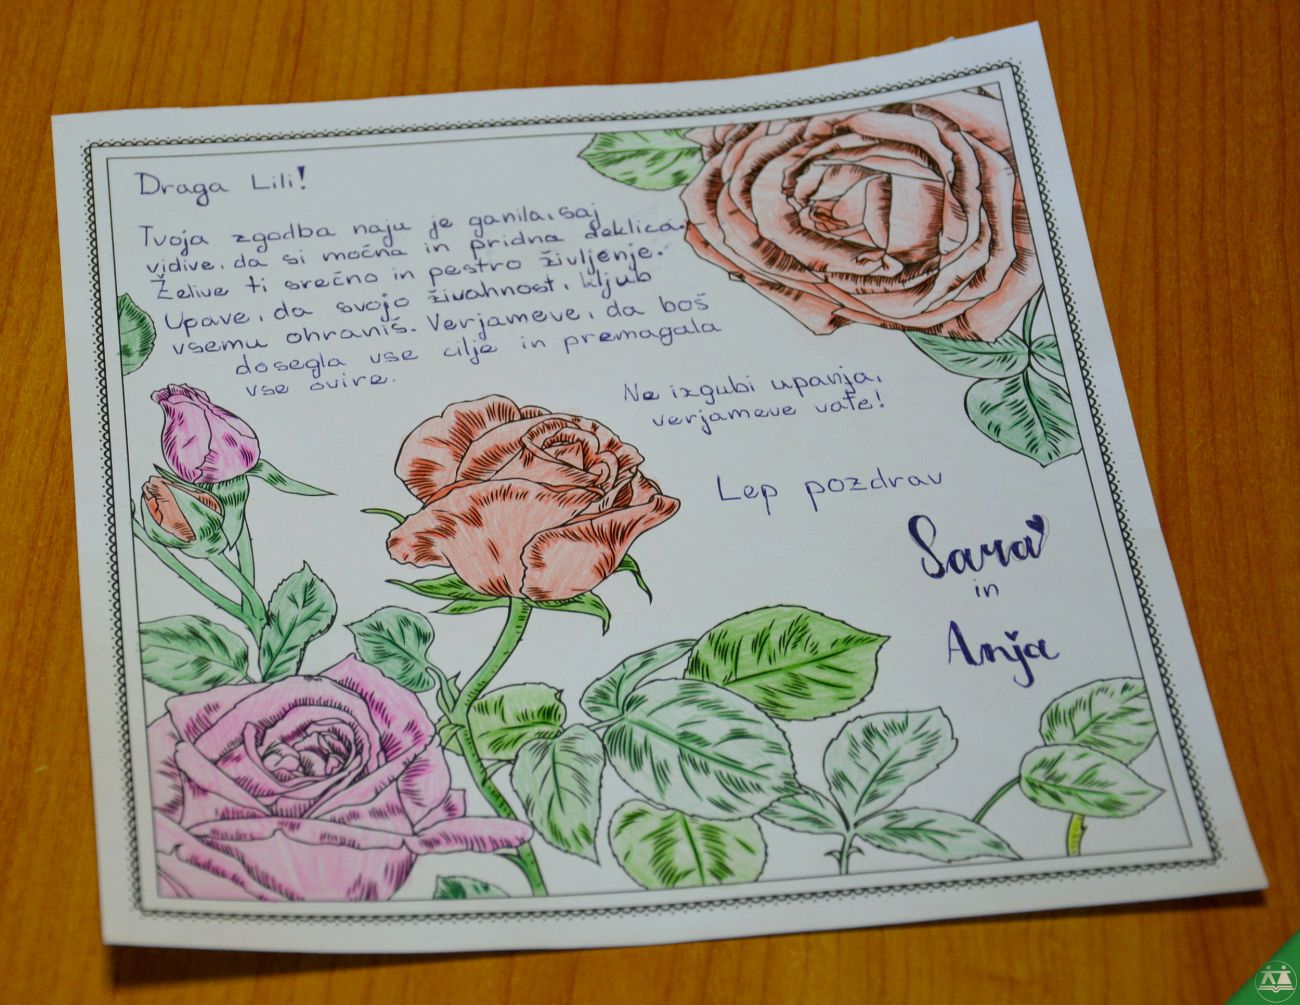 Draga Lili!
Tvoja zgodba naju je ganila, saj
vidive, da si močna in pridna deklica.
Želive ti srečno in pestro življenje.
Upave, da svojo živahnost, kljub
vsemu ohraniš. Verjameve, da boš
dosegla vse cilje in premagala
vse ovire.
Ne izgubi upanja,
verjameve vate!
Lep pozdrav
Sara
in
Anja